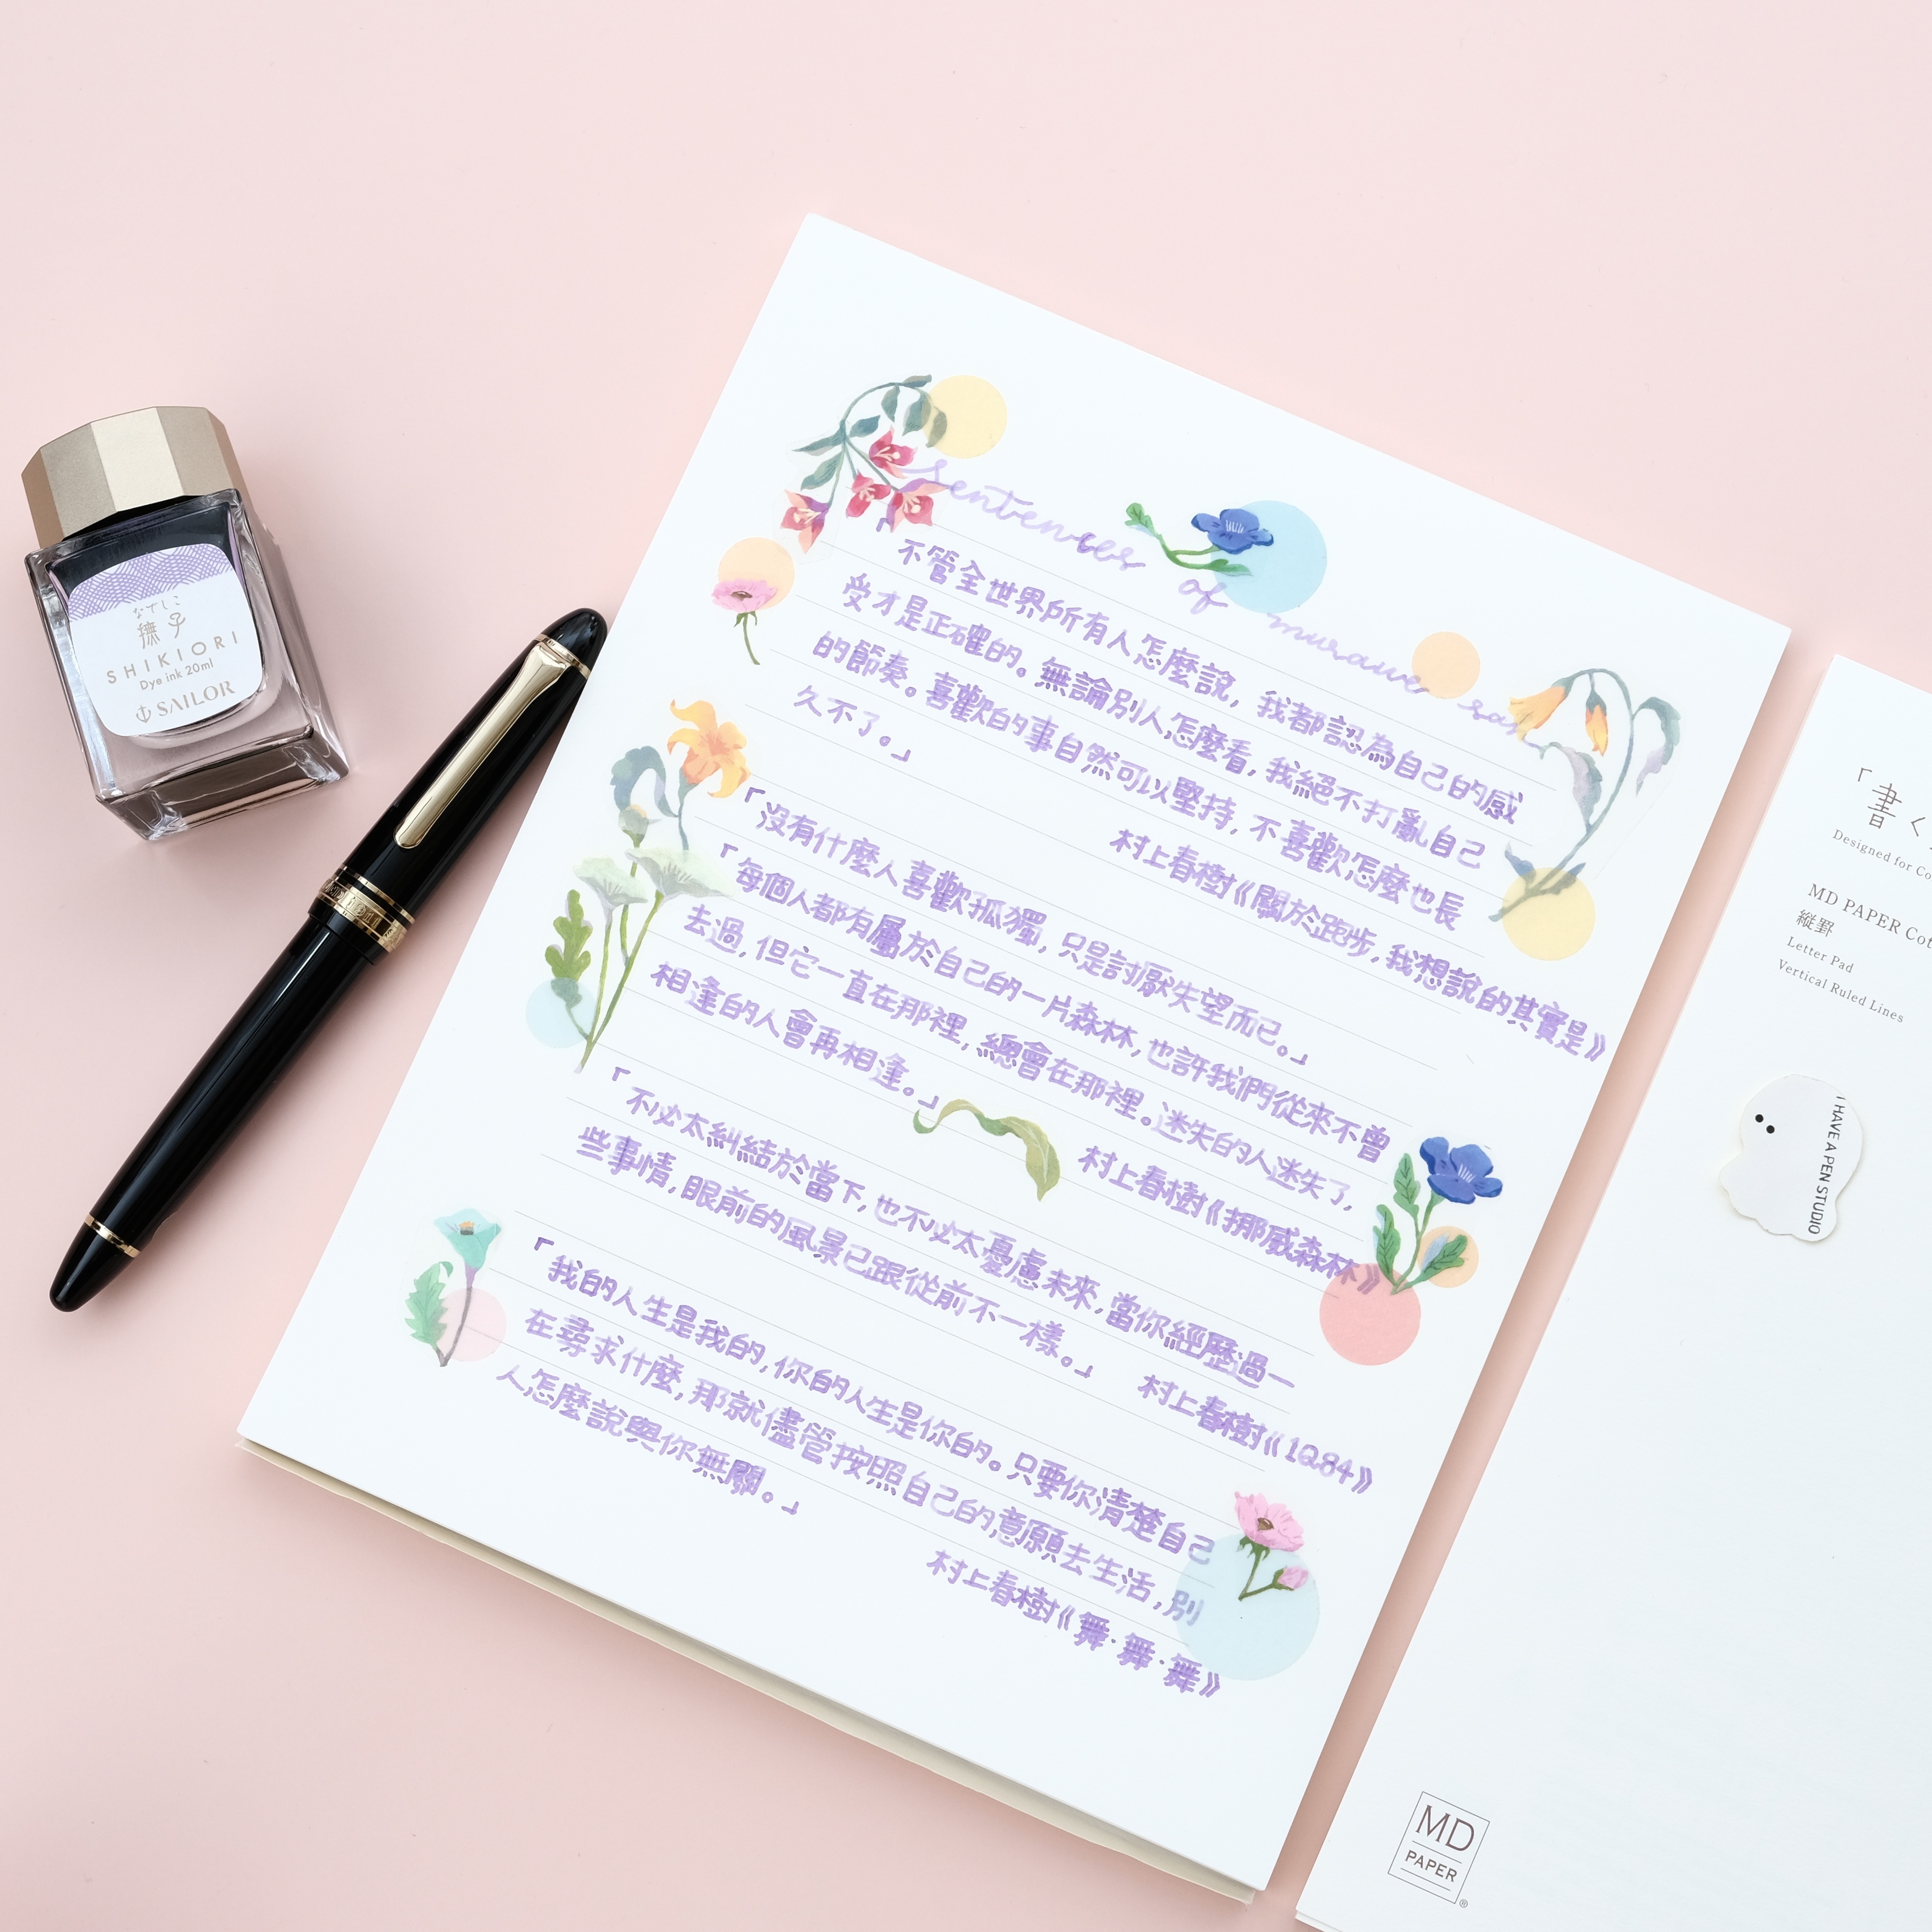 なでしこ
撫子
SHIKIORI
Dye ink 20ml
SAILOR
sentences of
「不管全世界所有人怎麼說，我都認為自己的感
受才是正確的。無論別人怎麼看，我絕不打亂自己
的節奏。喜歡的事自然可以堅持，不喜歡怎麼也長
久不了。」
村上春樹《關於跑步，我想說的其實是》
「沒有什麼人喜歡孤獨，只是討厭失望而已。」
「每個人都有屬於自己的一片森林，也許我們從來不曾
去過，但它一直在那裡，總會在那裡。迷失的人迷失了，
相逢的人會再相逢。」
村上春樹《挪威森林》
「不必太糾結於當下，也不必太憂慮未來，當你經歷過一
些事情，眼前的風景已跟從前不一樣。」
村上春樹《1Q84》
「我的人生是我的，你的人生是你的。只要你清楚自己
在尋求什麼，那就儘管按照自己的意願去生活，別
人怎麼說與你無關。」
村上春樹《舞·舞·舞》
「書く
Designed for Co
MD PAPER Cot
縦罫
Letter Pad
Vertical Ruled Lines
I HAVE A PEN STUDIO
MD
PAPER
®